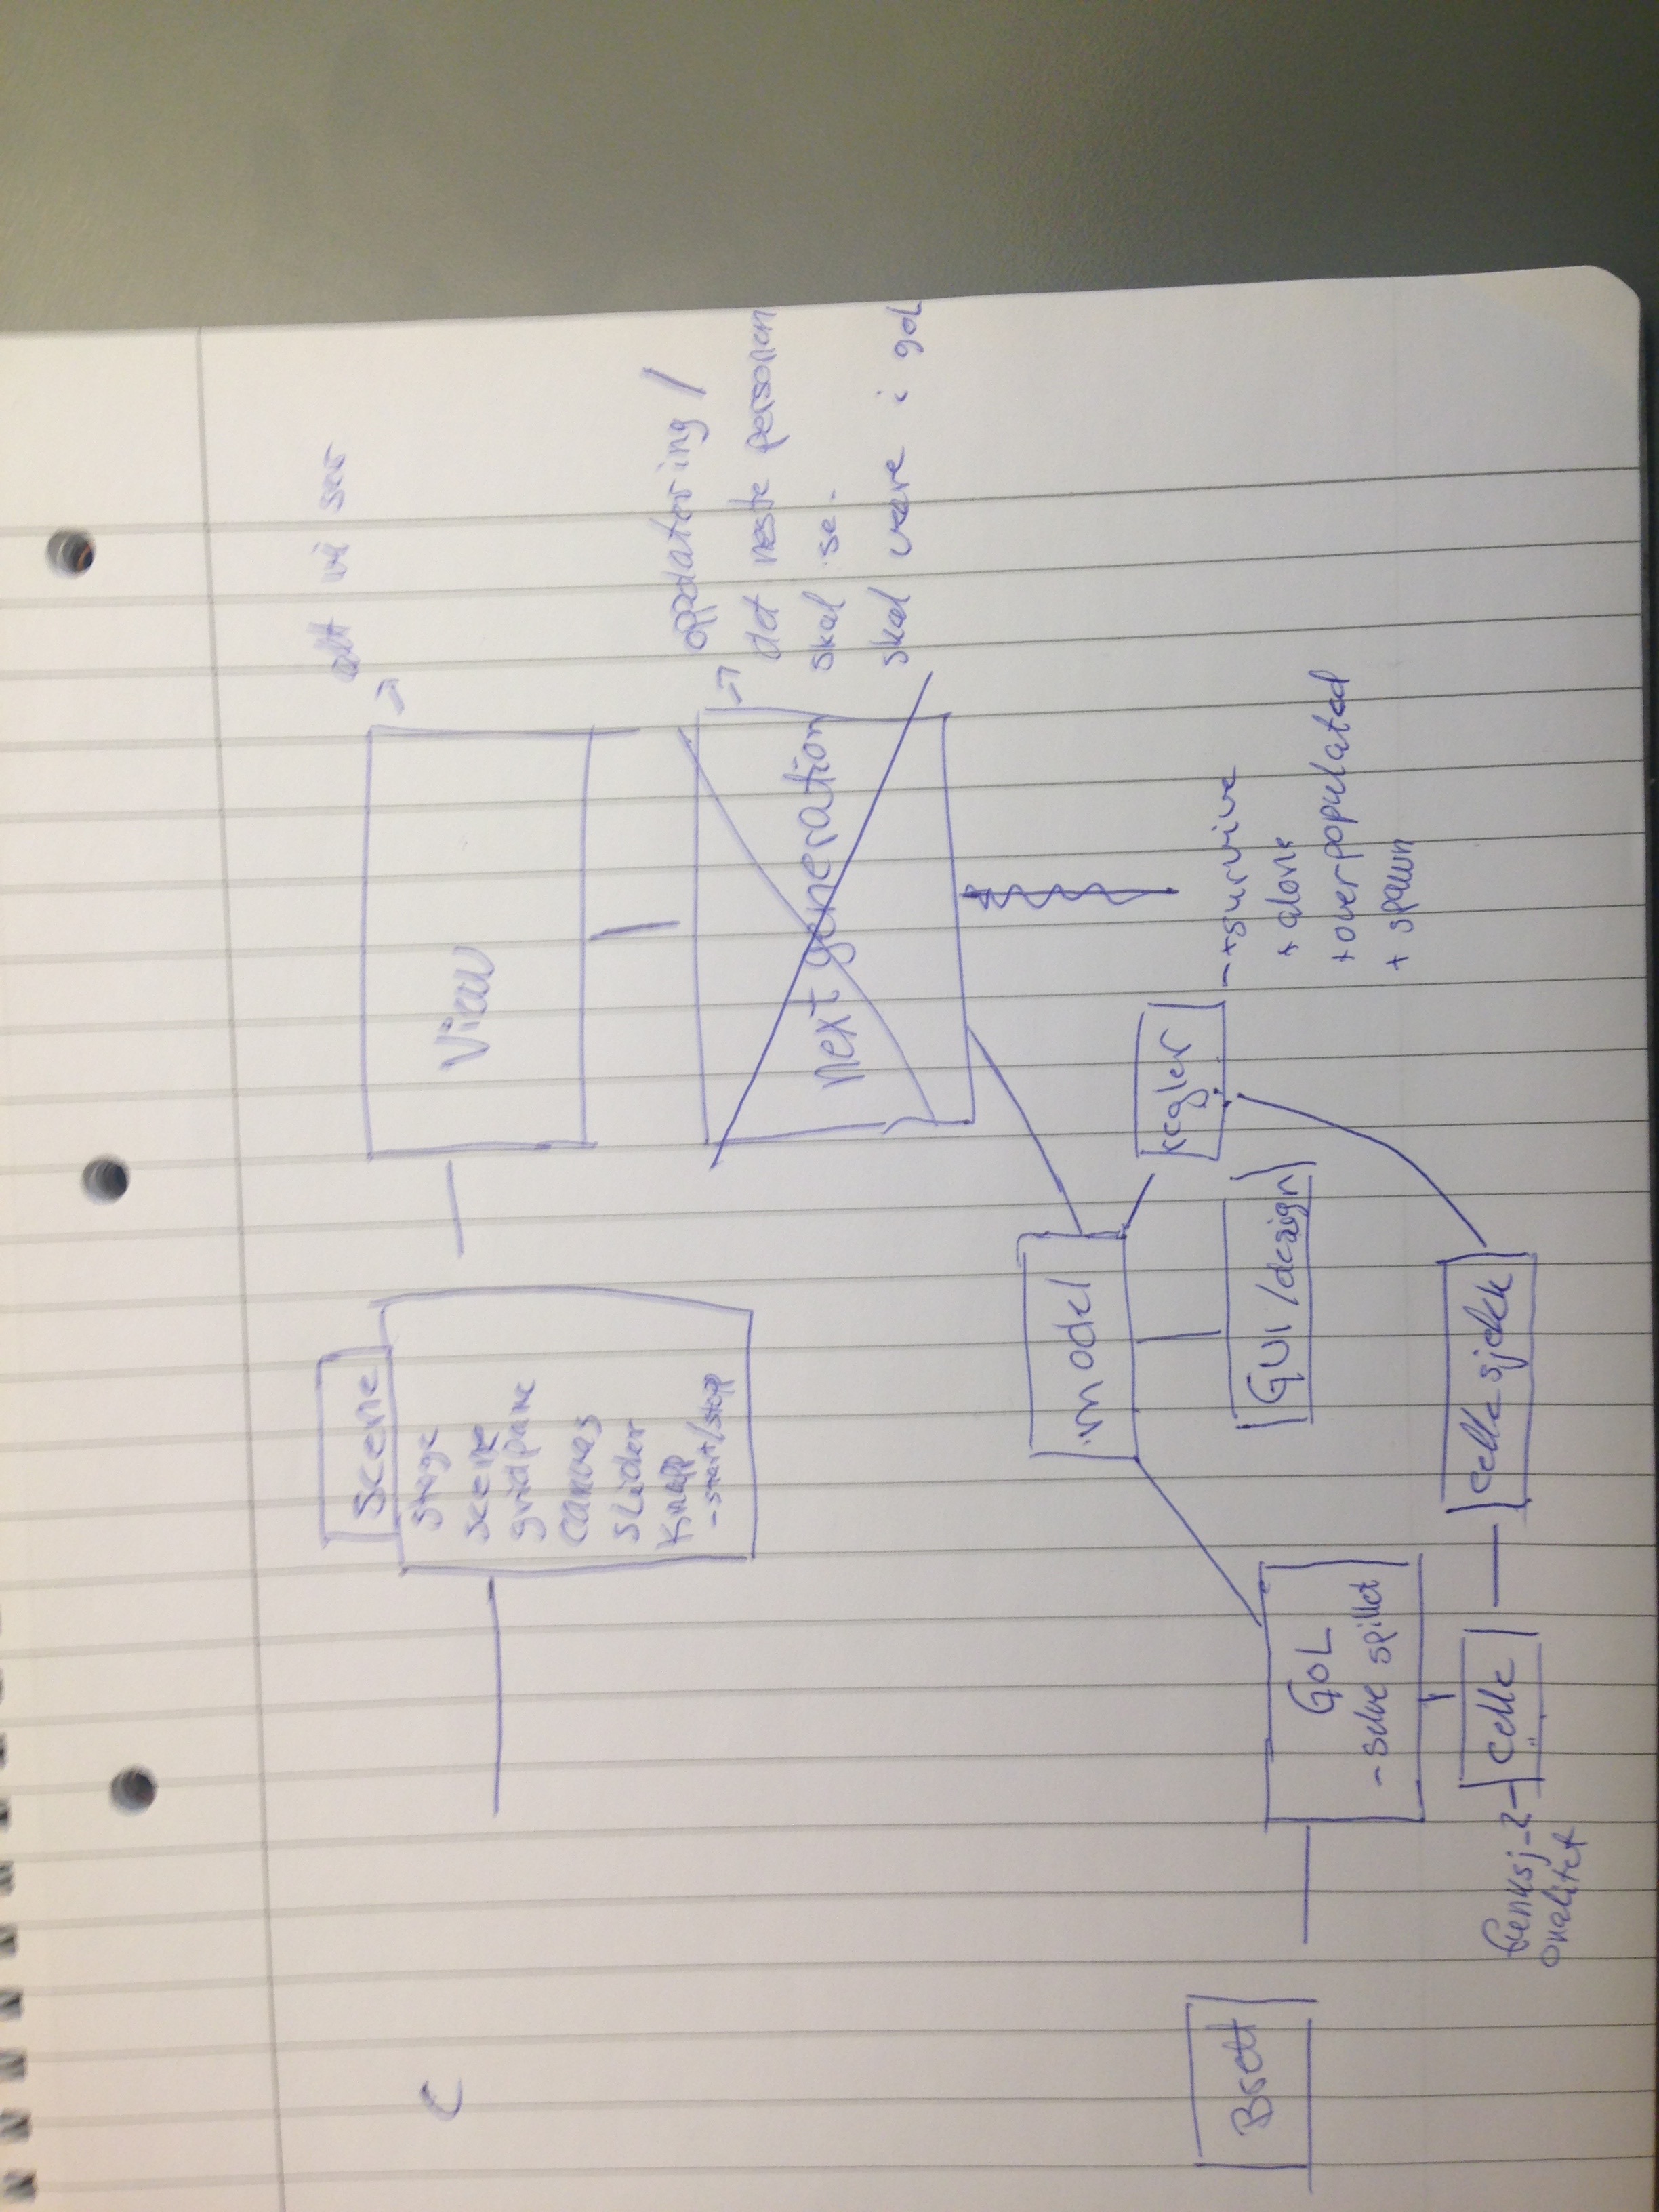 C
Scene
stage
scene
gridpane
canvas
slider
Knapp
-start/stopp
View
alt vi ser
next generation
oppdatering /
det neste personen
skal se.
skal være i gol
model
regler
-+survive
+ alone
+overpopulated
+ spawn
GUI /design
Brett
GoL
- selve spillet
Celle
Celle sjekk
onalitet